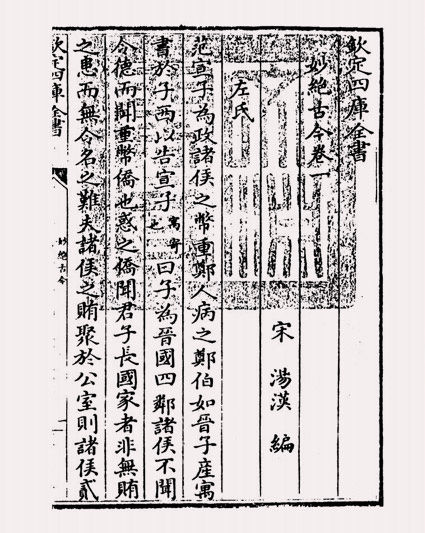 欽定四庫全書
妙絕古今卷一
宋 湯漢 編
左氏
范宣子為政諸侯之幣重鄭人病之鄭伯如晉子產寓
書於子西以告宣子寓寄也曰子為晉國四鄰諸侯不聞
令德而聞重幣僑也惑之僑聞君子長國家者非無賄
之患而無令名之難夫諸侯之賄聚於公室則諸侯貳
欽定四庫全書
妙絕古今
一